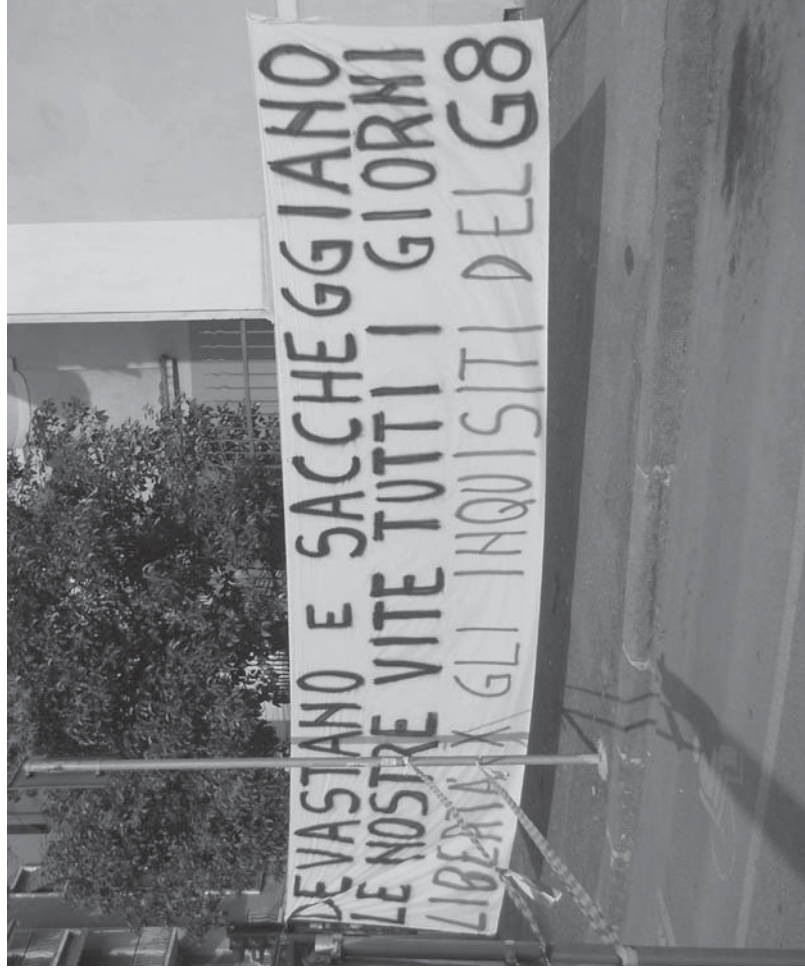 DEVASTANO E SACCHEGGIANO
LE NOSTRE VITE TUTTI I GIORNI
LIBERTÀ X GLI INQUISITI DEL G8